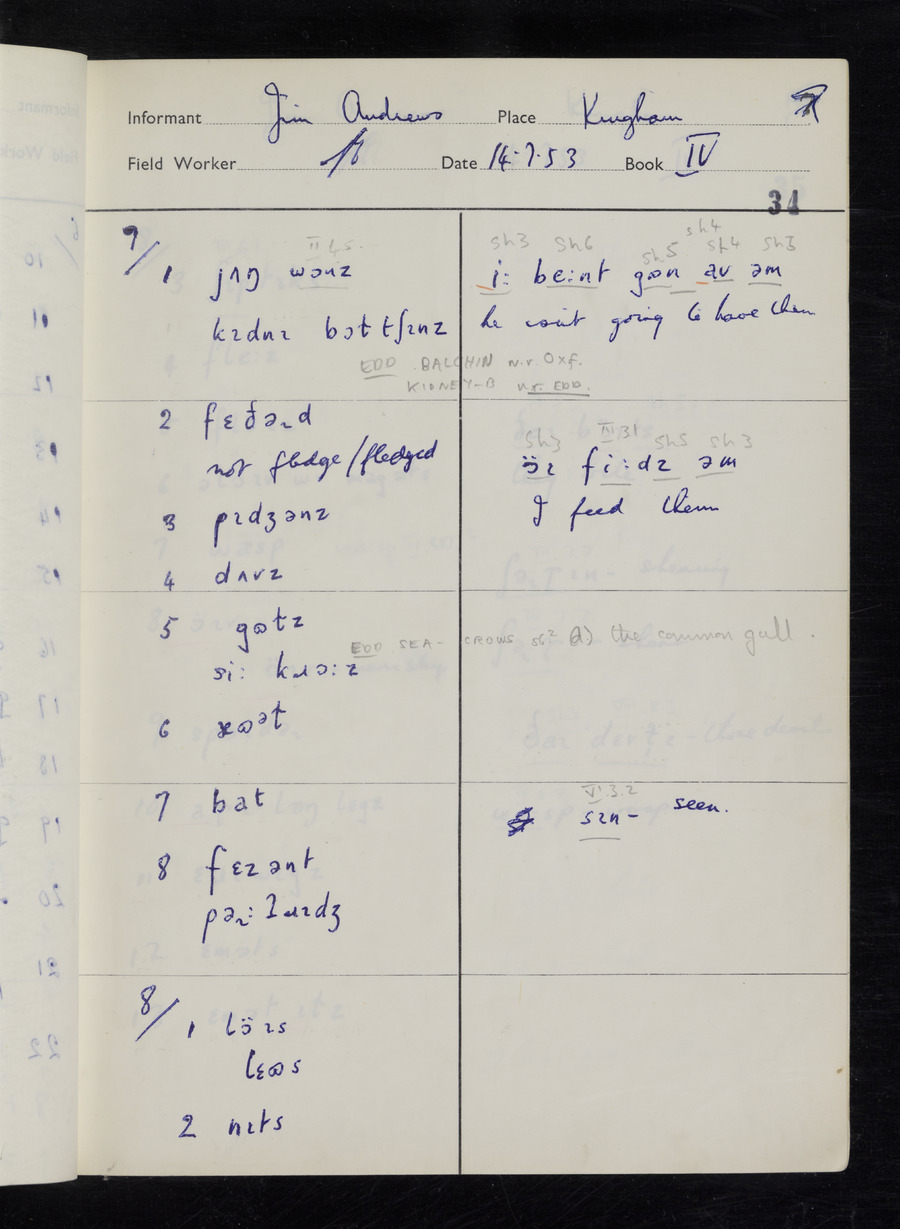 Informant Jim Andrews Place Kingham 7
Field Worker Date 14.7.53 Book IV
34
7/1 jʌŋ wənz
kɪdnɪ bɔttʃɪnz
EDD BALCHIN n.r. Oxf.
KIDNEY-B n.r. EDD.
2 fɛðəɹd
not fledge/fledged
3 pɪdʒənz
4 dʌvz
5 gɷtz
si: kɹɔ:z
EDD SEA-CROWS sb.² (1) the common gull.
6
7 bat
8 fɛzənt
pəɹ:ʇɹɪdʒ
8/1 lɔ̈ɪs
lɛɷs
2 nɪts
sh3 sh6 sh5 sh4 sh4 sh3
i: be:nt gɷɷn əv əm
he isn't going to have them
sh3 III 31 sh5 sh3
ɔ̈ɪ fi:dz əm
I feed them
VI 3.2
sɪn - seen.